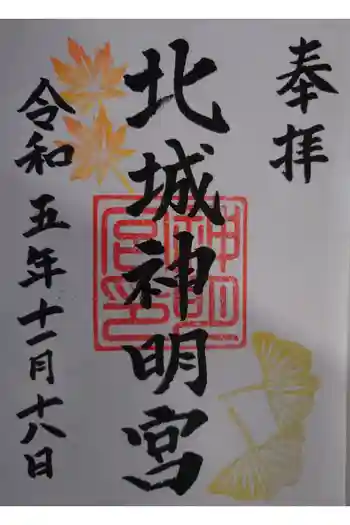 奉拝
北城神明宮
令和五年十一月十八日